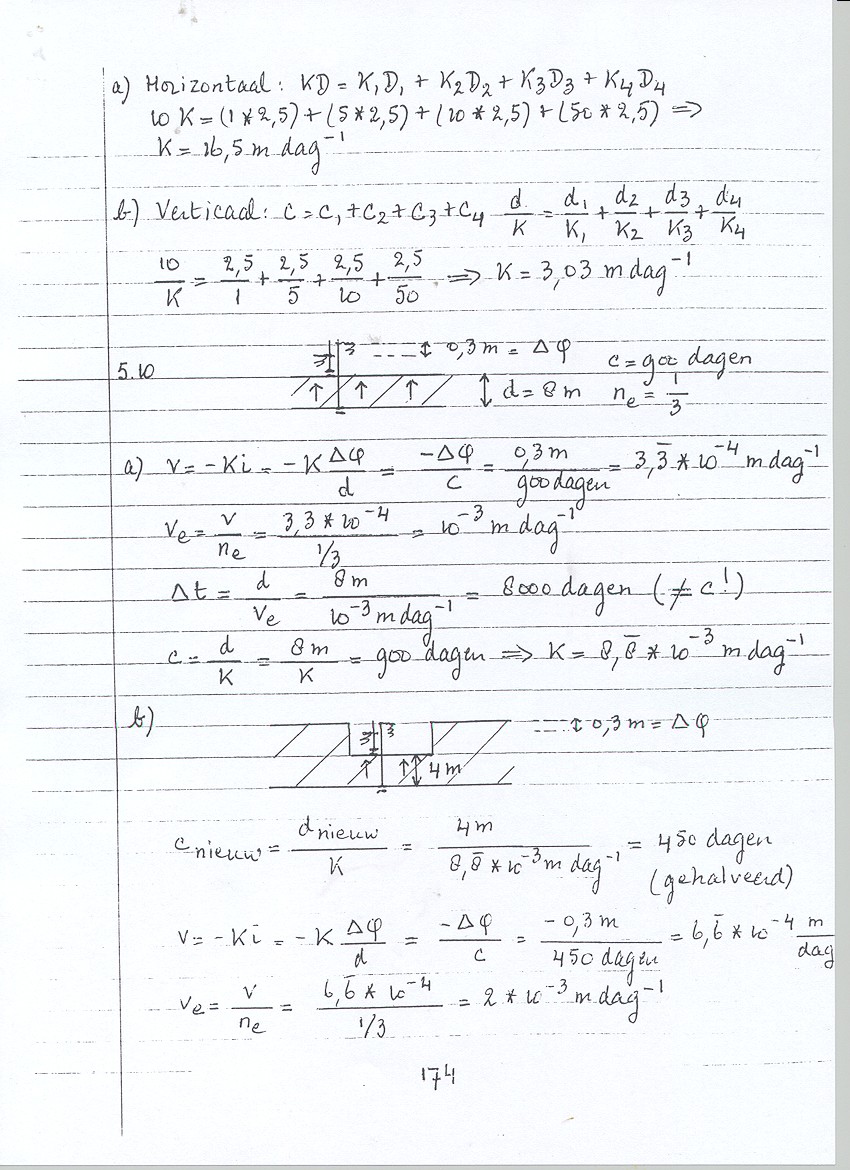 a) Horizontaal: KD = K₁D₁ + K₂D₂ + K₃D₃ + K₄D₄
10 K = (1 * 2,5) + (5 * 2,5) + (10 * 2,5) + (50 * 2,5) ⇒
K = 16,5 m dag⁻¹
b) Verticaal: C = C₁ + C₂ + C₃ + C₄ d/K = d₁/K₁ + d₂/K₂ + d₃/K₃ + d₄/K₄
10/K = 2,5/1 + 2,5/5 + 2,5/10 + 2,5/50 ⇒ K = 3,03 m dag⁻¹
5.10 ↕ 0,3 m = Δφ c = 900 dagen
↑ ↑ ↑ ↕ d = 8 m nₑ = 1/3
a) v = -Ki = -K Δφ/d = -Δφ/c = 0,3 m/900 dagen = 3,3̄ * 10⁻⁴ m dag⁻¹
vₑ = v/nₑ = 3,3 * 10⁻⁴/1/3 = 10⁻³ m dag⁻¹
Δt = d/vₑ = 8 m/10⁻³ m dag⁻¹ = 8000 dagen (≠ c!)
c = d/K = 8 m/K = 900 dagen ⇒ K = 8,8̄ * 10⁻³ m dag⁻¹
b) ↕ 0,3 m = Δφ
↑ ↑ ↕ 4 m
c nieuw = d nieuw/K = 4 m/8,8̄ * 10⁻³ m dag⁻¹ = 450 dagen
(gehalveerd)
v = -Ki = -K Δφ/d = -Δφ/c = -0,3 m/450 dagen = 6,6̄ * 10⁻⁴ m/dag
vₑ = v/nₑ = 6,6̄ * 10⁻⁴/1/3 = 2 * 10⁻³ m dag⁻¹
174